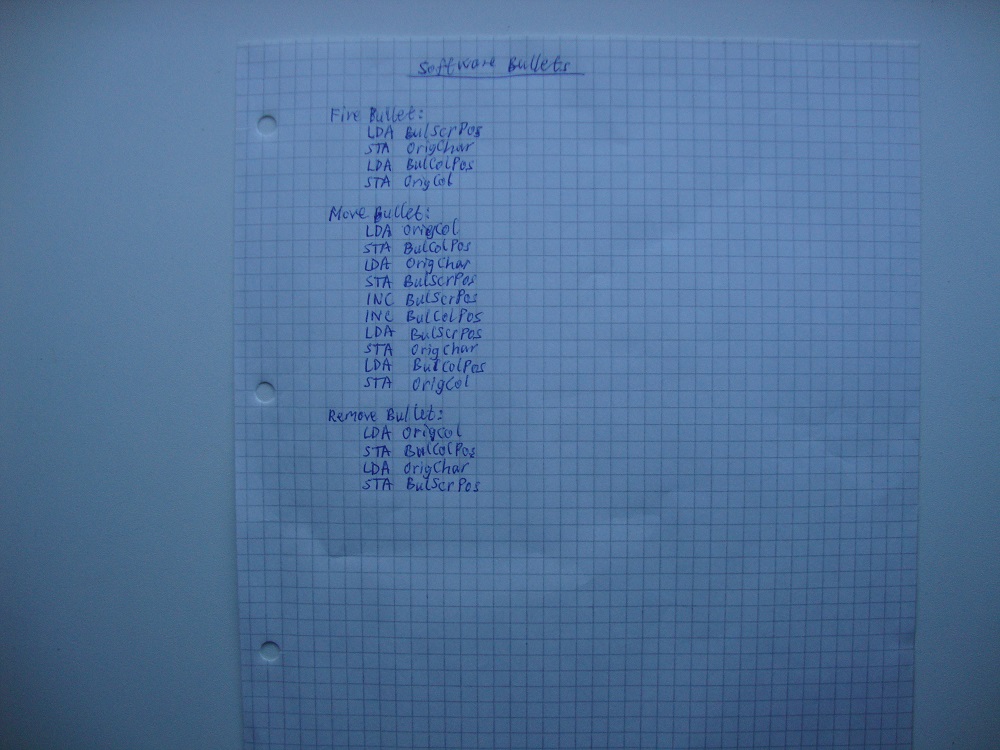 Software Bullets
Fire Bullet:
LDA BulScrPos
STA OrigChar
LDA BulColPos
STA OrigCol
Move Bullet:
LDA OrigCol
STA BulColPos
LDA OrigChar
STA BulScrPos
INC BulScrPos
INC BulColPos
LDA BulScrPos
STA OrigChar
LDA BulColPos
STA OrigCol
Remove Bullet:
LDA OrigCol
STA BulColPos
LDA OrigChar
STA BulScrPos